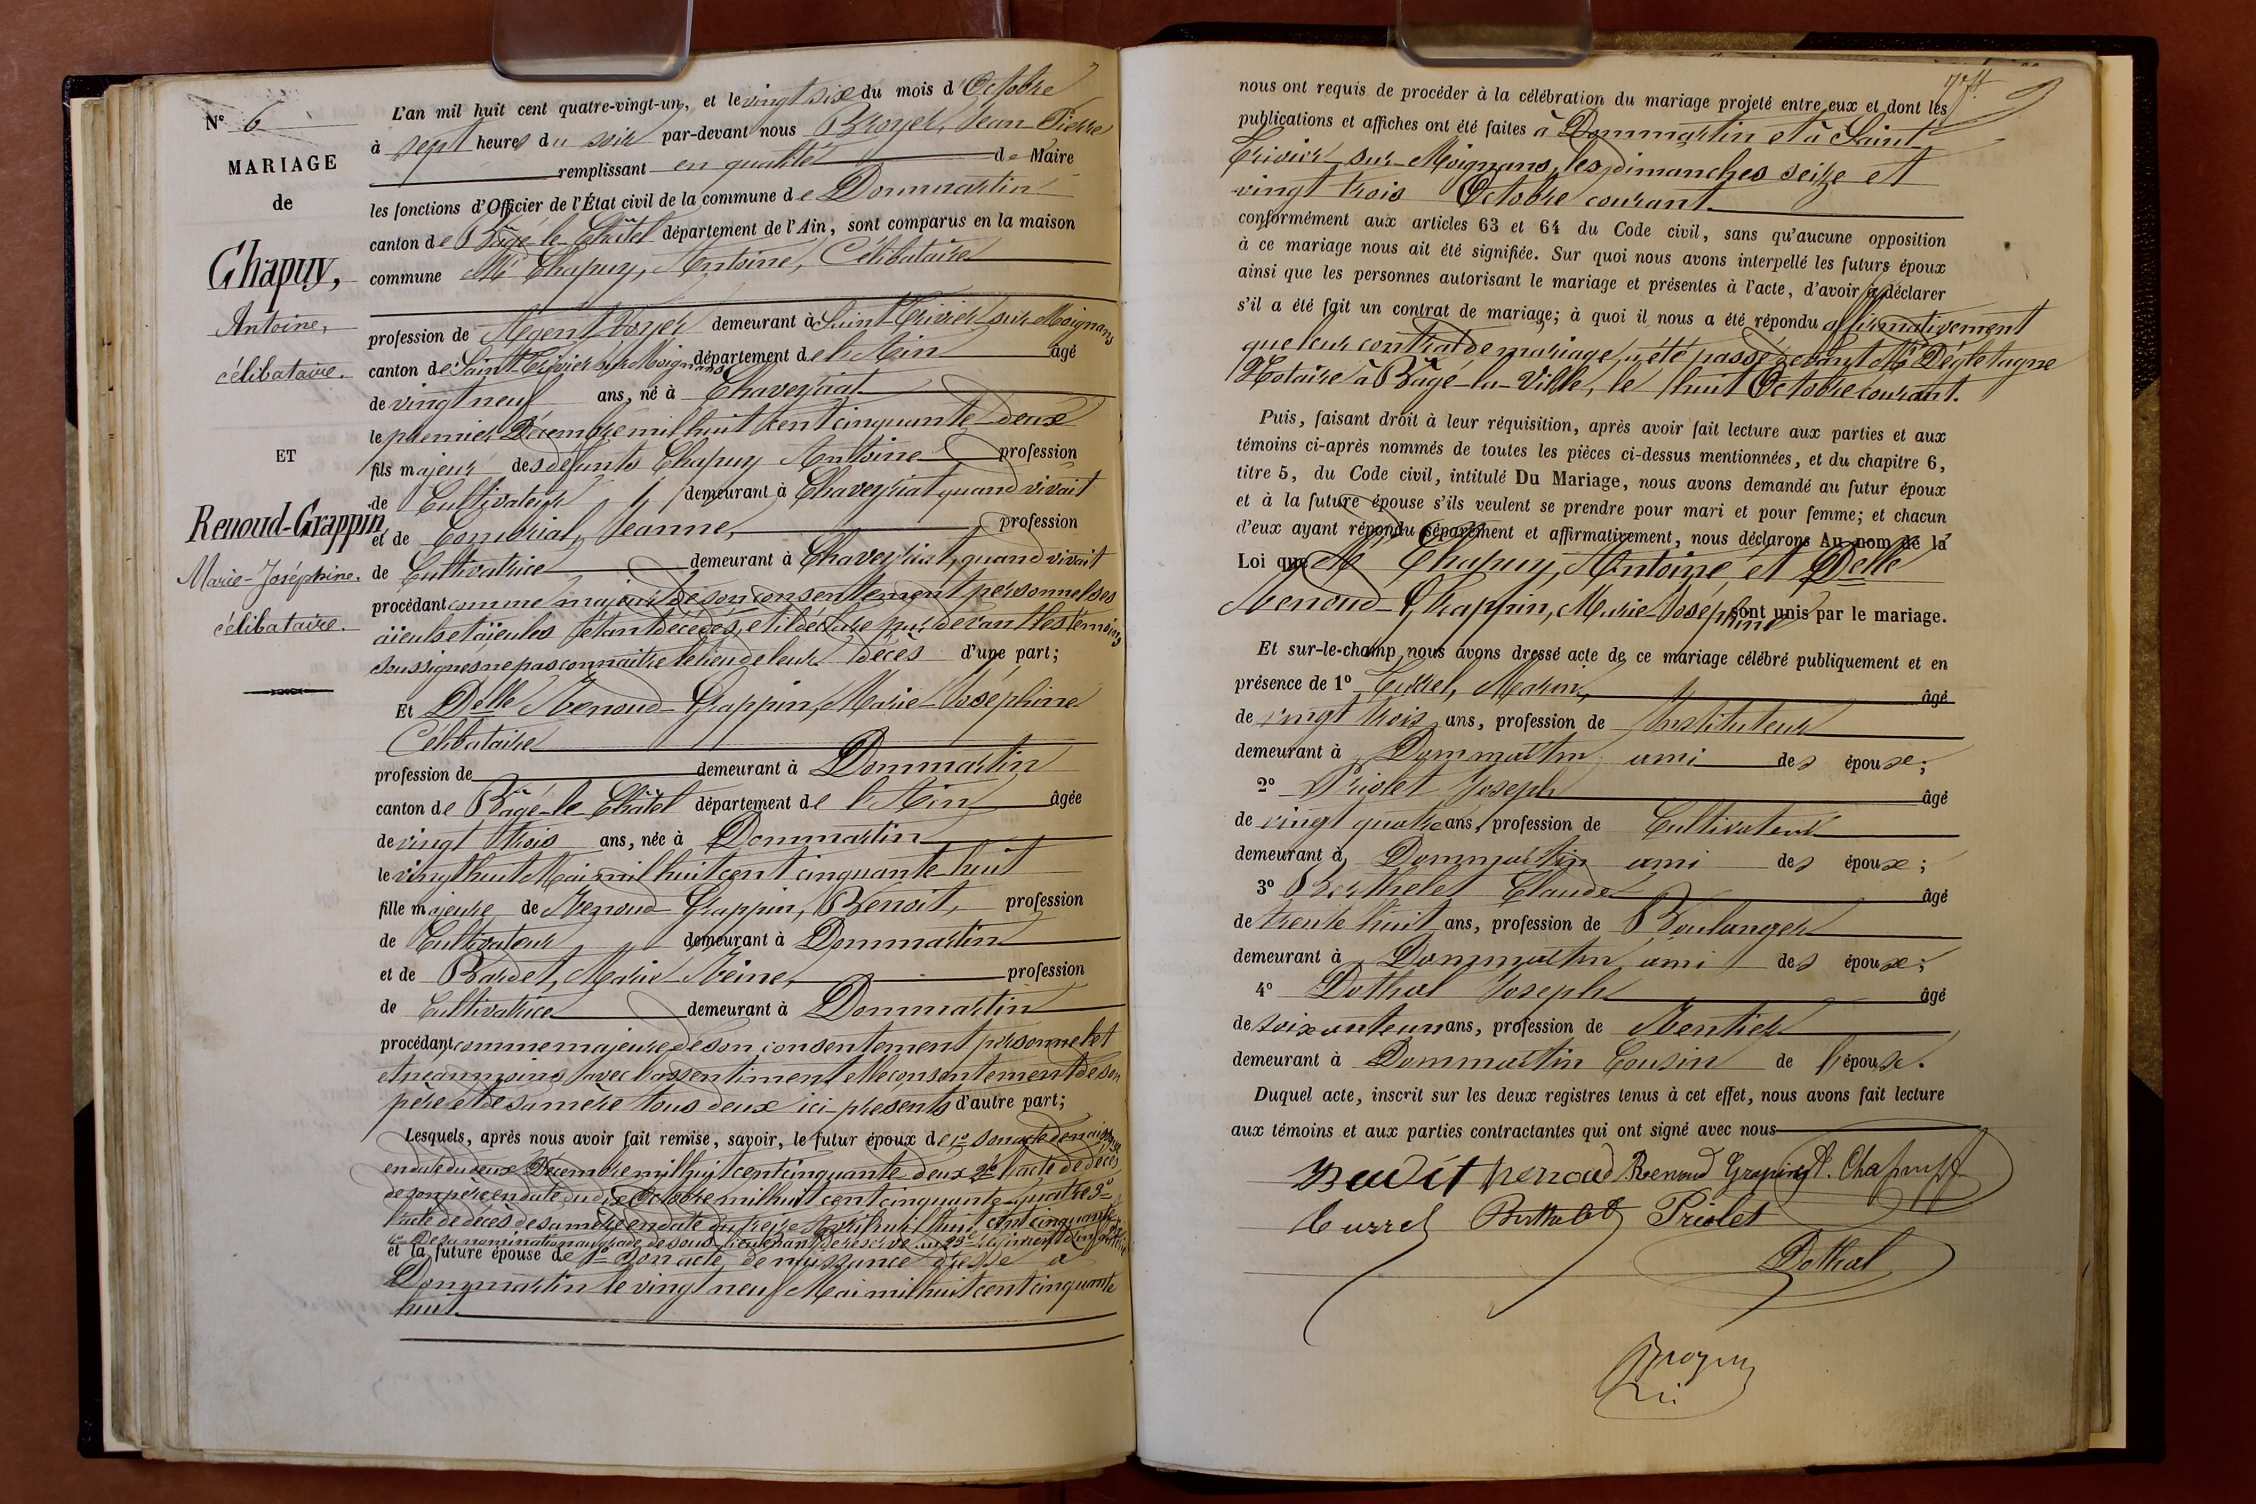 N° 6
MARIAGE
de
Chapuy,
Antoine,
célibataire.
ET
Renoud-Grappin
Marie-Joséphine.
célibataire.
L'an mil huit cent quatre-vingt-un, et le vingt six du mois d'Octobre
à sept heures du soir par-devant nous Broyer, Jean Pierre
remplissant en qualité de Maire
les fonctions d'Officier de l'État civil de la commune de Dommartin
canton de Bâgé-le-Châtel département de l'Ain, sont comparus en la maison
commune Mr Chapuy, Antoine, Célibataire
profession de Agent Voyer demeurant à Saint Trivier sur Moignans
canton de Saint Trivier sur Moignans département de l'Ain âgé
de vingt neuf ans, né à Chaveyriat
le premier Décembre mil huit cent cinquante deux
fils majeur des défunts Chapuy Antoine profession
de Cultivateur demeurant à Chaveyriat quand vivait
et de Combriat, Jeanne, profession
de Cultivatrice demeurant à Chaveyriat, quand vivait
procédant comme majeur de son consentement personnel ses
aïeuls et aïeules étant décédés, et il déclare par devant les témoins
soussignés ne pas connaître le lieu de leur décès d'une part;
Et Delle Renoud-Grappin, Marie-Joséphine
Célibataire
profession de demeurant à Dommartin
canton de Bâgé-le-Châtel département de l'Ain âgée
de vingt trois ans, née à Dommartin
le vingt huit Mai mil huit cent cinquante huit
fille majeure de Renoud-Grappin, Benoit, profession
de Cultivateur demeurant à Dommartin
et de Bardet, Marie-Reine, profession
de Cultivatrice demeurant à Dommartin
procédant comme majeure de son consentement personnel et
et néanmoins avec l'assentiment et le consentement de son
père et de sa mère tous deux ici-présents d'autre part;
Lesquels, après nous avoir fait remise, savoir, le futur époux de 1° son acte de naissance
en date du deux Décembre mil huit cent cinquante deux 2° l'acte de décès
de son père en date du dix Octobre mil huit cent cinquante quatre 3°
l'acte de décès de sa mère en date du treize Avril mil huit cent cinquante
4° De sa nomination au grade de sous-lieutenant de réserve au 23e régiment d'infanterie
et la future épouse de 1° son acte de naissance dressé à
Dommartin le vingt neuf Mai mil huit cent cinquante
huit.
nous ont requis de procéder à la célébration du mariage projeté entre eux et dont les
publications et affiches ont été faites à Dommartin et à Saint
Trivier-sur-Moignans, les dimanches seize et
vingt trois Octobre courant.
conformément aux articles 63 et 64 du Code civil, sans qu'aucune opposition
à ce mariage nous ait été signifiée. Sur quoi nous avons interpellé les futurs époux
ainsi que les personnes autorisant le mariage et présentes à l'acte, d'avoir à déclarer
s'il a été fait un contrat de mariage; à quoi il nous a été répondu affirmativement
que leur contrat de mariage a été passé devant Me Dégletagne
Notaire à Bâgé-la-Ville, le huit Octobre courant.
Puis, faisant droit à leur réquisition, après avoir fait lecture aux parties et aux
témoins ci-après nommés de toutes les pièces ci-dessus mentionnées, et du chapitre 6,
titre 5, du Code civil, intitulé Du Mariage, nous avons demandé au futur époux
et à la future épouse s'ils veulent se prendre pour mari et pour femme; et chacun
d'eux ayant répondu séparément et affirmativement, nous déclarons Au nom de la
Loi que Mr Chapuy, Antoine, et Delle
Renoud-Grappin, Marie-Joséphine sont unis par le mariage.
Et sur-le-champ, nous avons dressé acte de ce mariage célébré publiquement et en
présence de 1° Marin, âgé
de vingt trois ans, profession de Instituteur
demeurant à Dommartin ami des époux;
2° Priolet Joseph âgé
de vingt quatre ans, profession de Cultivateur
demeurant à Dommartin ami des époux;
3° Berthelet Claude âgé
de trente huit ans, profession de Boulanger
demeurant à Dommartin ami des époux;
4° Dothal Joseph âgé
de soixante un ans, profession de Rentier
demeurant à Dommartin Cousin de l'épouse.
Duquel acte, inscrit sur les deux registres tenus à cet effet, nous avons fait lecture
aux témoins et aux parties contractantes qui ont signé avec nous
Renoud Grapin A. Chapuy
Berthelet Priolet
Dothal
Broyer